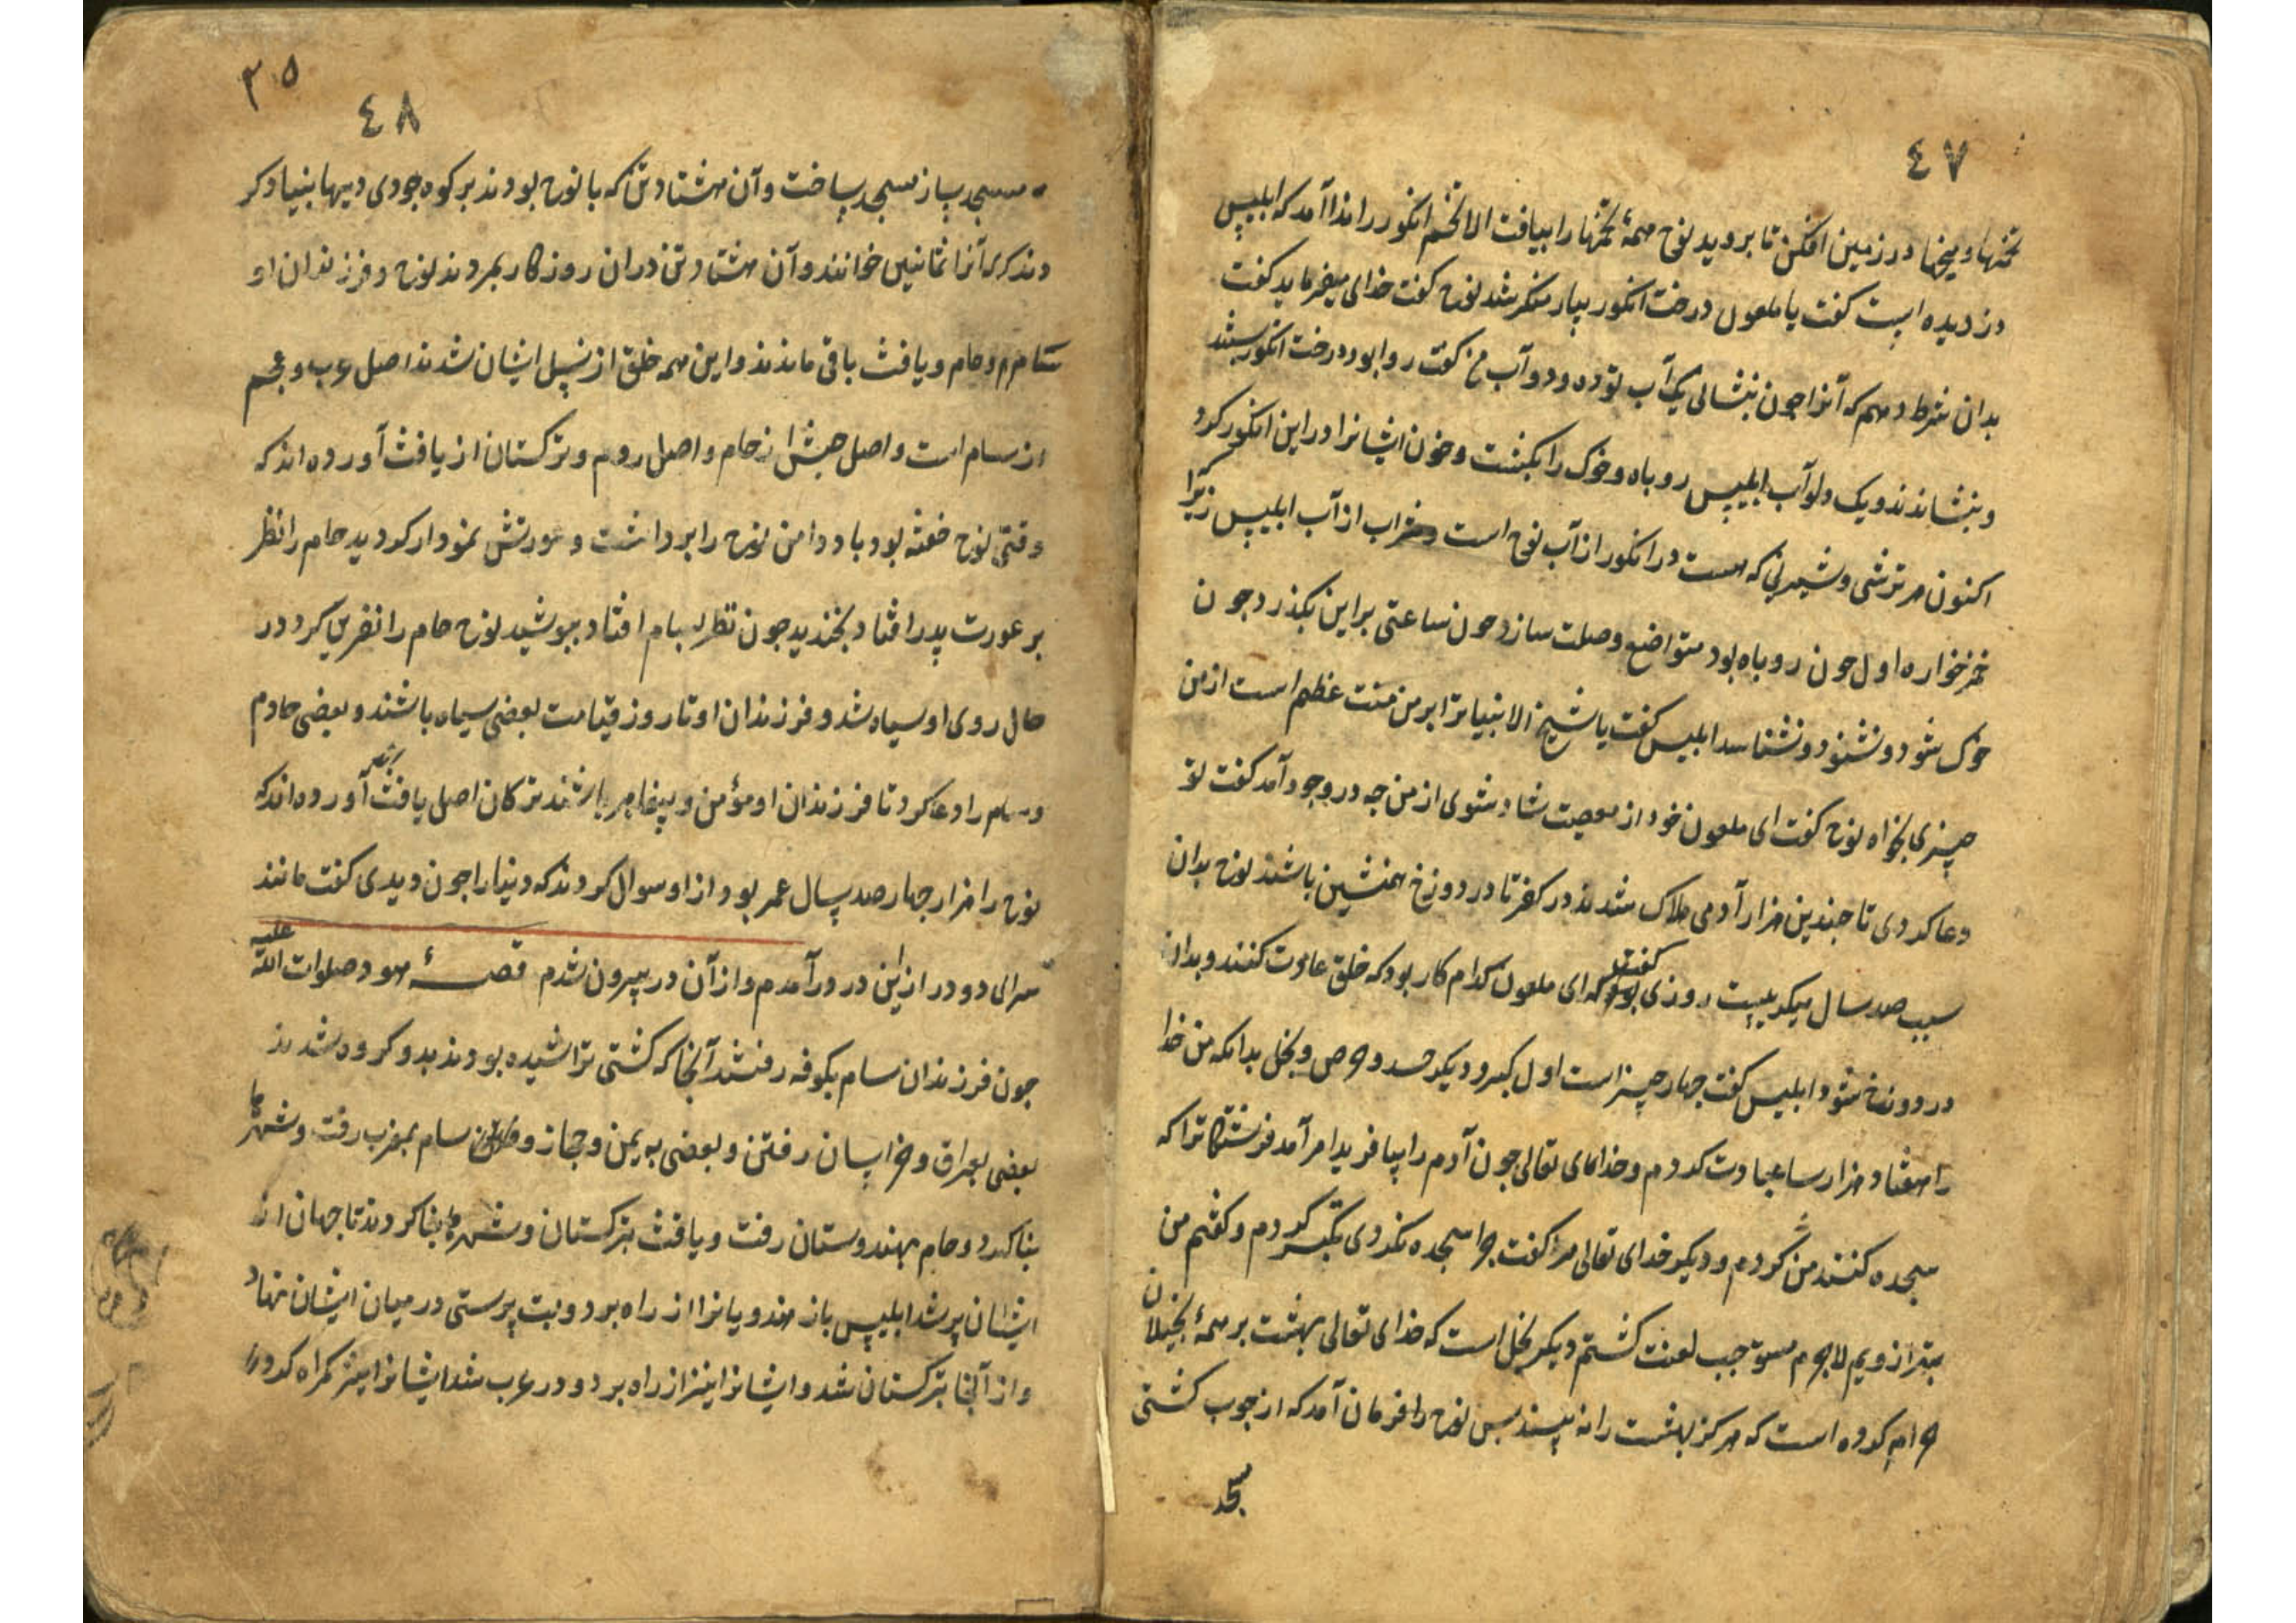 ٤٧
تخمها و میخها در زمین افکن تا بروید نوح همهٔ تخمها را بیافت الا تخم انکور را ندا آمد که ابلیس
دزدیده است کفت یا ملعون درخت انکور بیار منکر شد نوح کفت خدای میفرماید کفت
بدان شرط دهم که آنرا جون بنشانی یک آب تو ده و دو آب من کفت روا بود درخت انکور بستد
و بنشاندند و یک دلو آب ابلیس روباه و خوک را بکشت و خون ایشانرا در این انکور کرد
اکنون هر ترشی و شیرینی که هست در انکور از آب نوح است و شراب از آب ابلیس زیرا
خمرخواره اول جون روباه بود متواضع وصلت سازد جون ساعتی بر این بکذرد جون
خوک شود و نشنود و نشناسد ابلیس کفت یا شیخ الانبیا ترا بر من منت عظیم است از من
جیزی بخواه نوح کفت ای ملعون خود از معصیت شاد شوی از من جه در وجود آمد کفت تو
دعا کردی تا جندین هزار آدمی هلاک شدند در کفر تا در دوزخ همنشین باشند نوح بدان
سبب صد سال میکریست روزی کفت که ای ملعون کدام کار بود که خلق عادت کنند و بدان
در دوزخ شود ابلیس کفت جهار جیز است اول کبر و دیکر حسد و حرص و بخل بدانکه من خدا
را هفتاد هزار سا عبادت کردم و خدای تعالی جون آدم را بیافرید امر آمد فرشتکانرا که
سجده کنند من نکردم و دیکر خدای تعالی مرا کفت جرا سجده نکردی تکبر کردم و کفتم من
بهتر از ویم لاجرم مستوجب لعنت کشتم دیکر بخل است که خدای تعالی بهشت بر همهٔ بخیلان
حرام کرده است که هرکز بهشت را نه بینند بس نوح را فرمان آمد که از جوب کشتی
مسجد
٣٥
٤٨
مسجد بساز مسجد بساخت و آن هشتاد تن که با نوح بودند بر کوه جودی دیهها بنیاد کر
دند که آنرا ثمانین خوانند و آن هشتاد تن در آن روزکار بمردند نوح و فرزندان او
سام و حام و یافث باقی ماندند و این همه خلق از نسل ایشان شدند اصل عرب و عجم
از سام است و اصل حبش از حام و اصل روم و ترکستان از یافث آورده اند که
وقتی نوح خفته بود باد دامن نوح را برداشت و عورتش نمودار کردید حام را نظر
بر عورت پدر افتاد بخندید جون نظر سام افتاد ببوشید نوح حام را نفرین کرد در
حال روی او سیاه شد و فرزندان او تا روز قیامت بعضی سیاه باشند و بعضی خادم
و سام را دعا کرد تا فرزندان او مؤمن و پیغامبر باشند ترکان اصل یافث آورده اند که
نوح را هزار جهار صد سال عمر بود از او سوال کردند که دنیا را جون دیدی کفت مانند
سرای دو در از این در در آمدم و از آن در بیرون شدم قصهٔ هود صلوات الله علیه
جون فرزندان سام بکوفه رفتند آنجا که کشتی تراشیده بودند بدو کروه شدند
بعضی بعراق و خراسان رفتن و بعضی به یمن و حجاز و سام بمغرب رفت و شهرها
بنا کرد و حام بهندوستان رفت و یافث بترکستان و شهرها بنا کردند تا جهان از
ایشان پر شد ابلیس باز هندویانرا از راه برد و بت پرستی در میان ایشان نهاد
و از آنجا بترکستان شد و ایشانرا نیز از راه برد و در عرب شد ایشانرا نیز کمراه کرد